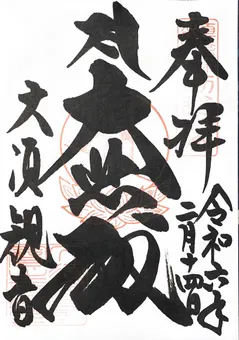 奉拝
令和六年
二月十四日
大悲殿
大須
観音